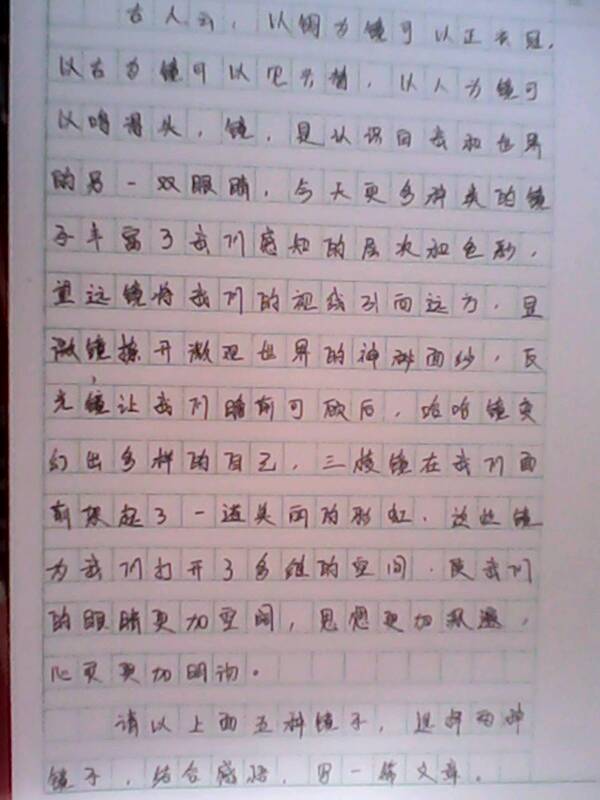 古人云，以铜为镜可以正衣冠，
以古为镜可以见兴替，以人为镜可
以明得失，镜，是认识自我和世界
的另一双眼睛，今天更多种类的镜
子丰富了我们感知的层次和色彩，
望远镜将我们的视线引向远方，显
微镜撩开微观世界的神秘面纱，反
光镜让我们瞻前可顾后，哈哈镜变
幻出多样的自己，三棱镜在我们面
前架起了一道美丽的彩虹，这些镜
为我们打开了多维的空间，使我们
的眼睛更加空阔，思想更加飘逸，
心灵更加明
请以上面五种镜子，选择两种
镜子，结合感悟，写一篇文章。